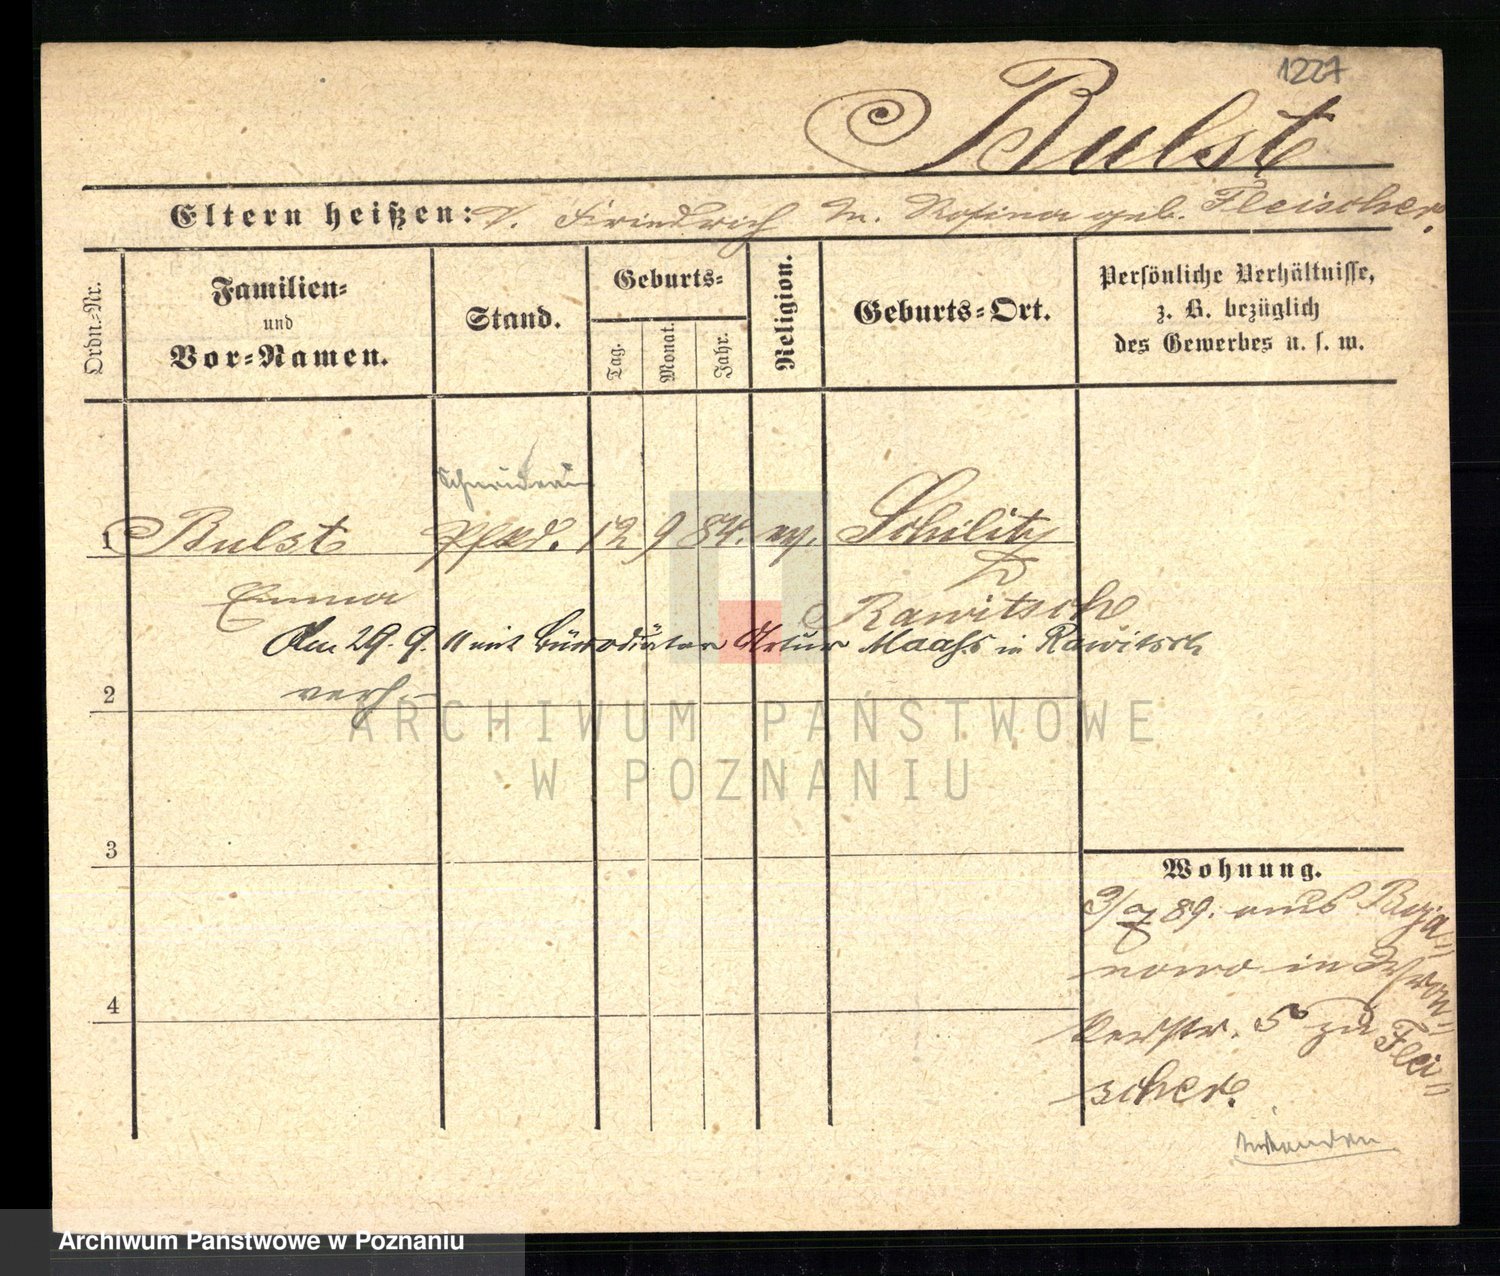 1227
Bulst
Eltern heißen: V. Friedrich M. Rosina geb. Fleischer.
Ordn.-Nr.
Familien-
und
Vor-Namen.
Stand.
Geburts-
Tag.
Monat.
Jahr.
Religion.
Geburts-Ort.
Persönliche Verhältnisse,
z. B. bezüglich
des Gewerbes u. s. w.
Schneiderin
1 Bulst Pflkd. 12 9 84. ev. Schilitz
Emma Rawitsch
Am 29. 9. 11 mit Bürodiätar Artur Maahs in Rawitsch
2 verh.
ARCHIWUM PAŃSTWOWE
W POZNANIU
3
Wohnung.
3/7 89. aus Boja-
nowo in Wron-
4
kerstr. 5 zu Flei-
scher.
Archiwum Państwowe w Poznaniu